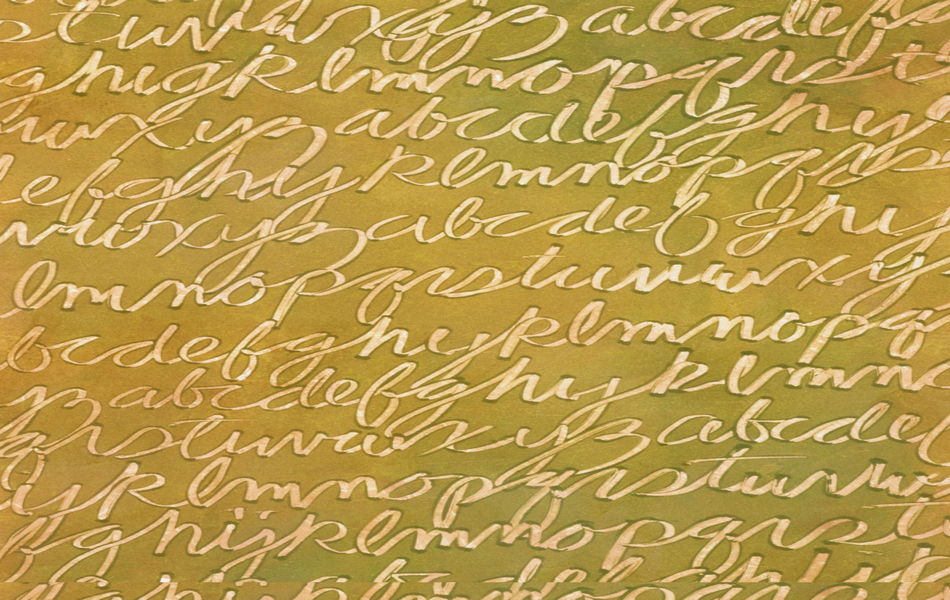 stuvwxyz abcdef
ghijk lmnopqrst
uvwxyz abcdefghij
defghij klmnopqrs
uvwxyz abcdef ghij
lmnopqrstuvwxy
bcdefghijklmnopq
yz abcdefghijk lmn
qrstuvwxyz abcde
ijk lmnopqrstuvw
fghijklmnopqrs